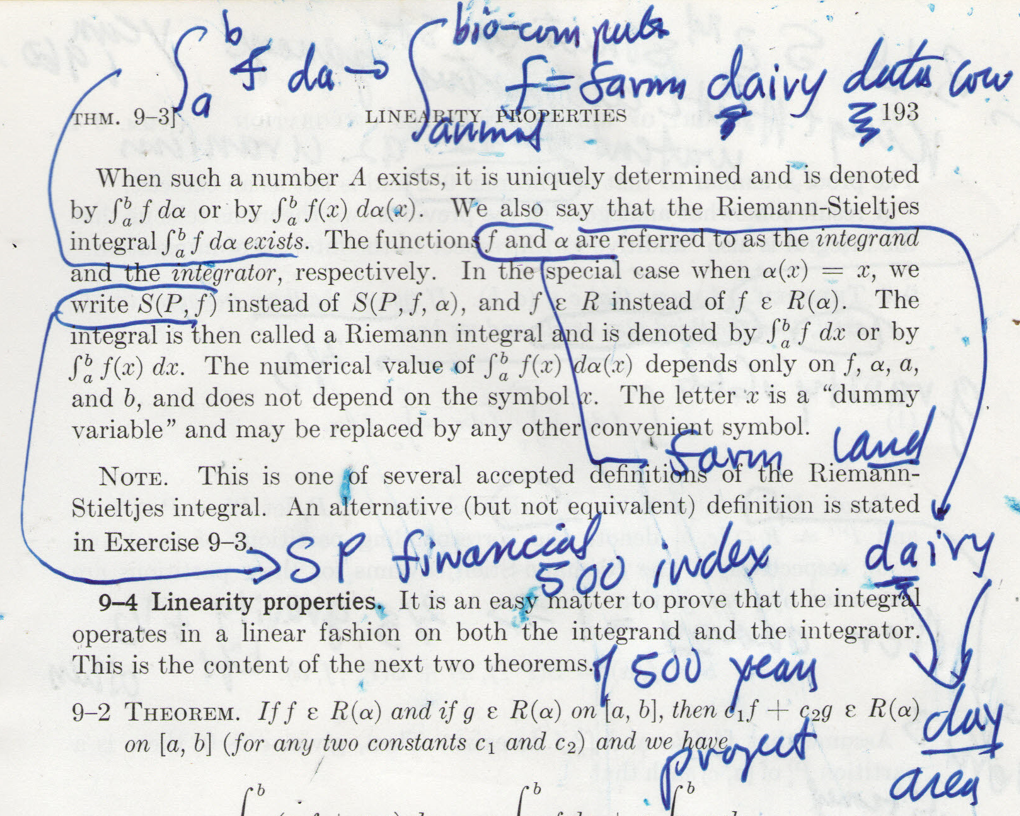 ∫_a^b f da → ∫_animal^bio-computer f = farm dairy data cow
THM. 9–3] LINEARITY PROPERTIES 193
When such a number A exists, it is uniquely determined and is denoted
by ∫_a^b f dα or by ∫_a^b f(x) dα(x). We also say that the Riemann-Stieltjes
integral ∫_a^b f dα exists. The functions f and α are referred to as the integrand
and the integrator, respectively. In the special case when α(x) = x, we
write S(P, f) instead of S(P, f, α), and f ε R instead of f ε R(α). The
integral is then called a Riemann integral and is denoted by ∫_a^b f dx or by
∫_a^b f(x) dx. The numerical value of ∫_a^b f(x) dα(x) depends only on f, α, a,
and b, and does not depend on the symbol x. The letter x is a “dummy
variable” and may be replaced by any other convenient symbol.
farm land
NOTE. This is one of several accepted definitions of the Riemann-
Stieltjes integral. An alternative (but not equivalent) definition is stated
in Exercise 9–3.
SP financial 500 index dairy
9–4 Linearity properties. It is an easy matter to prove that the integral
operates in a linear fashion on both the integrand and the integrator.
This is the content of the next two theorems.
1500 years
9–2 THEOREM. If f ε R(α) and if g ε R(α) on [a, b], then c₁f + c₂g ε R(α)
on [a, b] (for any two constants c₁ and c₂) and we have
project
day
area